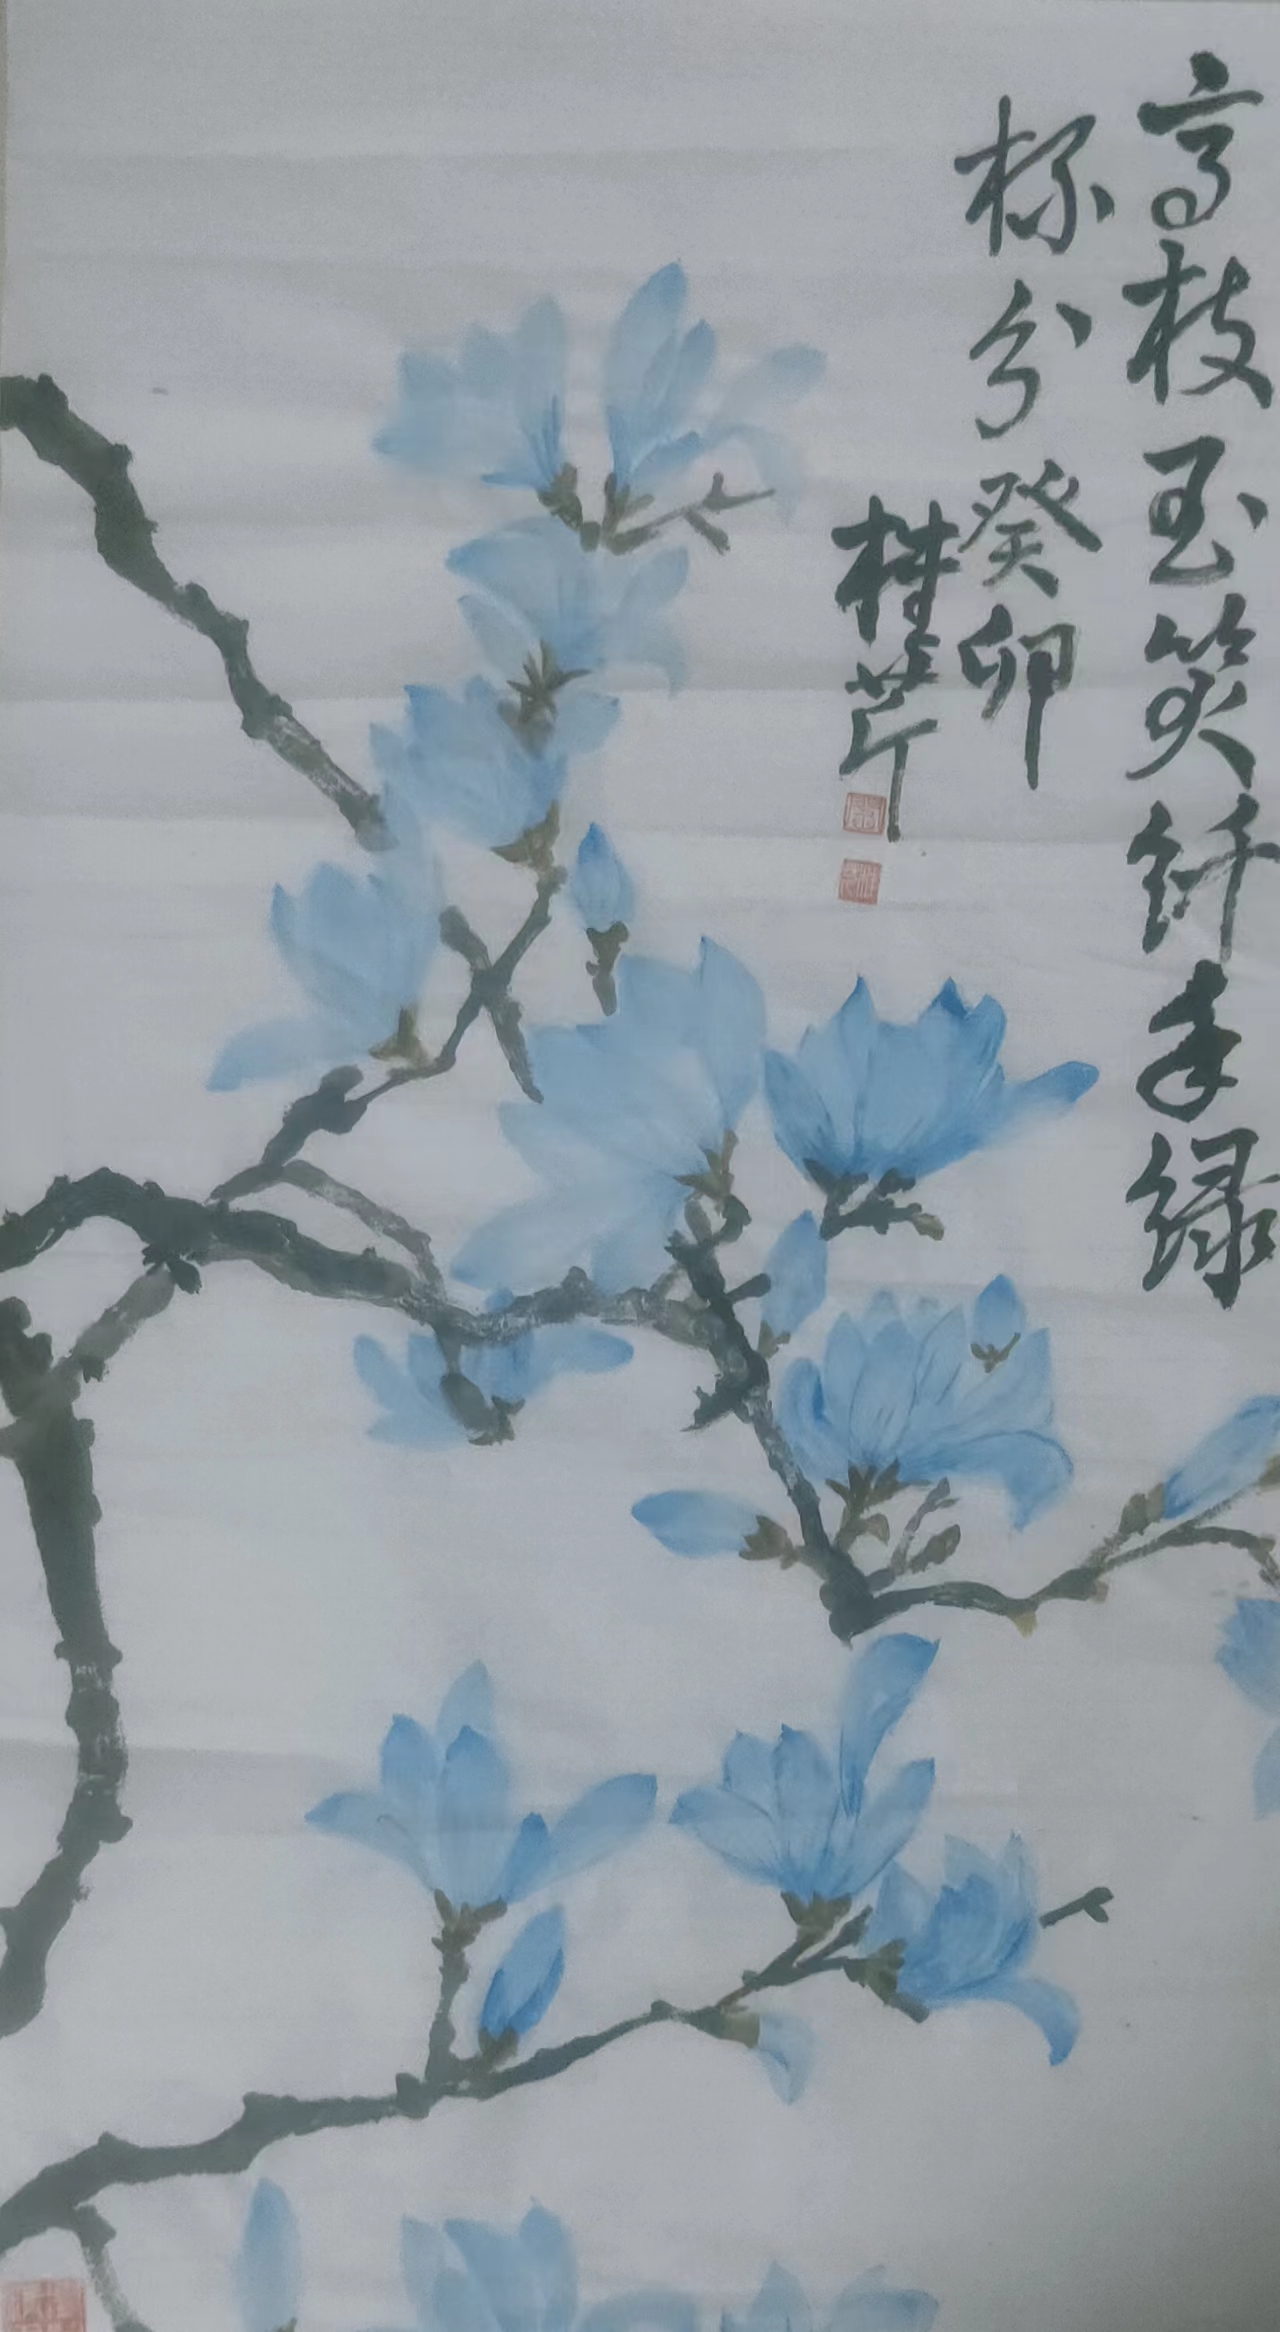 高枝玉笑纤手绿
杯分癸卯
桂芹